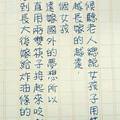 候聽老人總說女孩子用
越長嫁的越遠
個女孩
遠嫁國外的夢想所以
直用兩雙筷子接起來吃
到長大後嫁給炸油條的